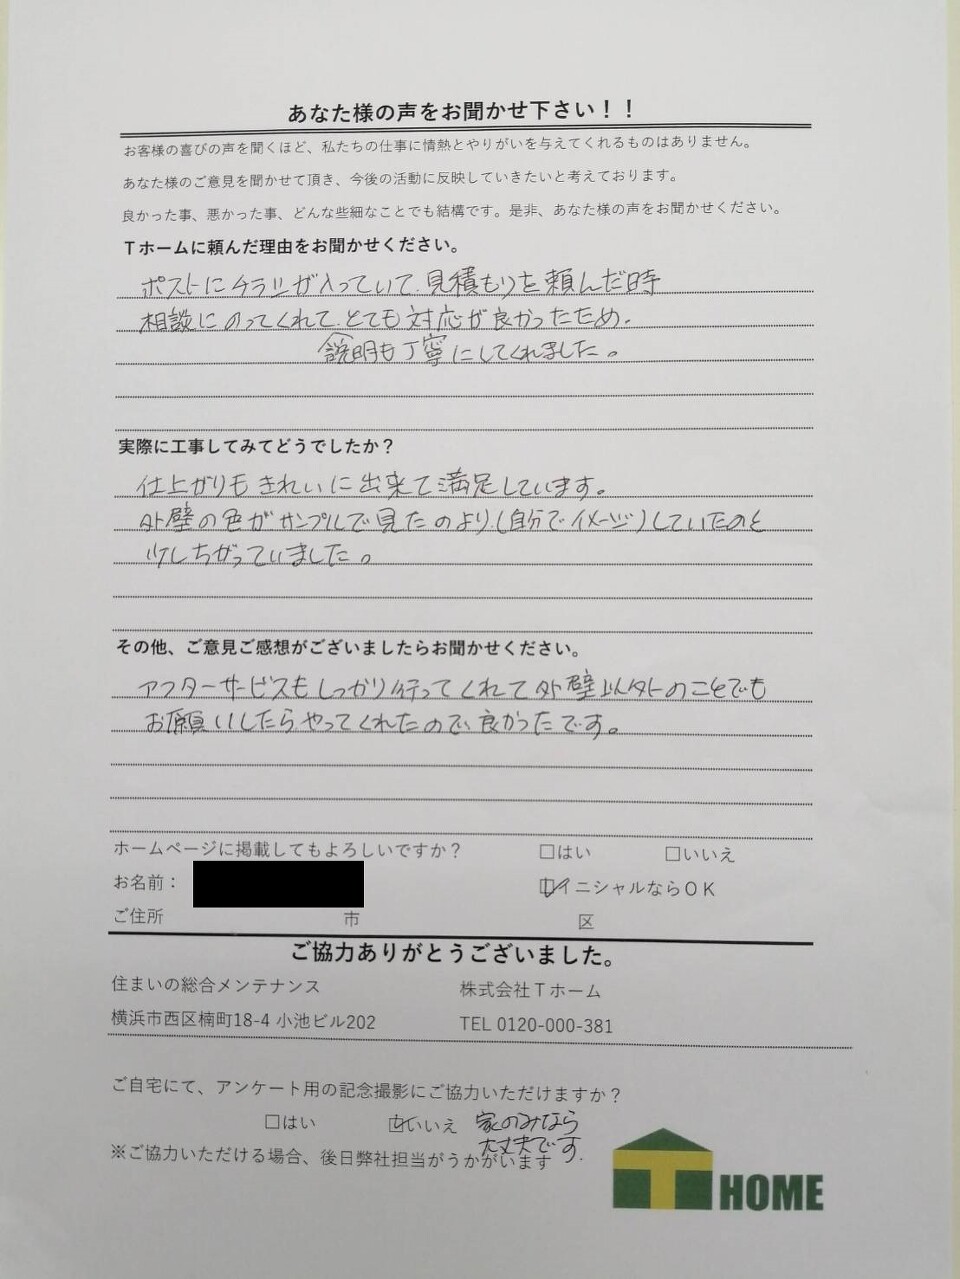 あなた様の声をお聞かせ下さい！！
お客様の喜びの声を聞くほど、私たちの仕事に情熱とやりがいを与えてくれるものはありません。
あなた様のご意見を聞かせて頂き、今後の活動に反映していきたいと考えております。
良かった事、悪かった事、どんな些細なことでも結構です。是非、あなた様の声をお聞かせください。
Ｔホームに頼んだ理由をお聞かせください。
ポストにチラシが入っていて、見積もりを頼んだ時
相談にのってくれて、とても対応が良かったため。
説明も丁寧にしてくれました。
実際に工事してみてどうでしたか？
仕上がりもきれいに出来て満足しています。
外壁の色がサンプルで見たのより、(自分でイメージ)していたのと
少しちがっていました。
その他、ご意見ご感想がございましたらお聞かせください。
アフターサービスもしっかり行ってくれて外壁以外のことでも
お願いしたらやってくれたので、良かったです。
ホームページに掲載してもよろしいですか？ □はい □いいえ
お名前： ☑イニシャルならＯＫ
ご住所 市 区
ご協力ありがとうございました。
住まいの総合メンテナンス 株式会社Ｔホーム
横浜市西区楠町18-4 小池ビル202 TEL 0120-000-381
ご自宅にて、アンケート用の記念撮影にご協力いただけますか？
□はい ☑いいえ 家のみなら
大丈夫です。
※ご協力いただける場合、後日弊社担当がうかがいます
T HOME